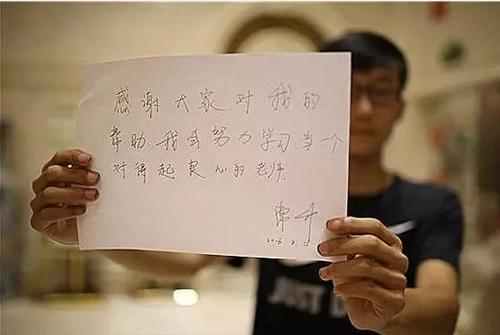 感谢大家对我的
帮助,我会努力学习,当一个
对得起良心的老师
JUST D